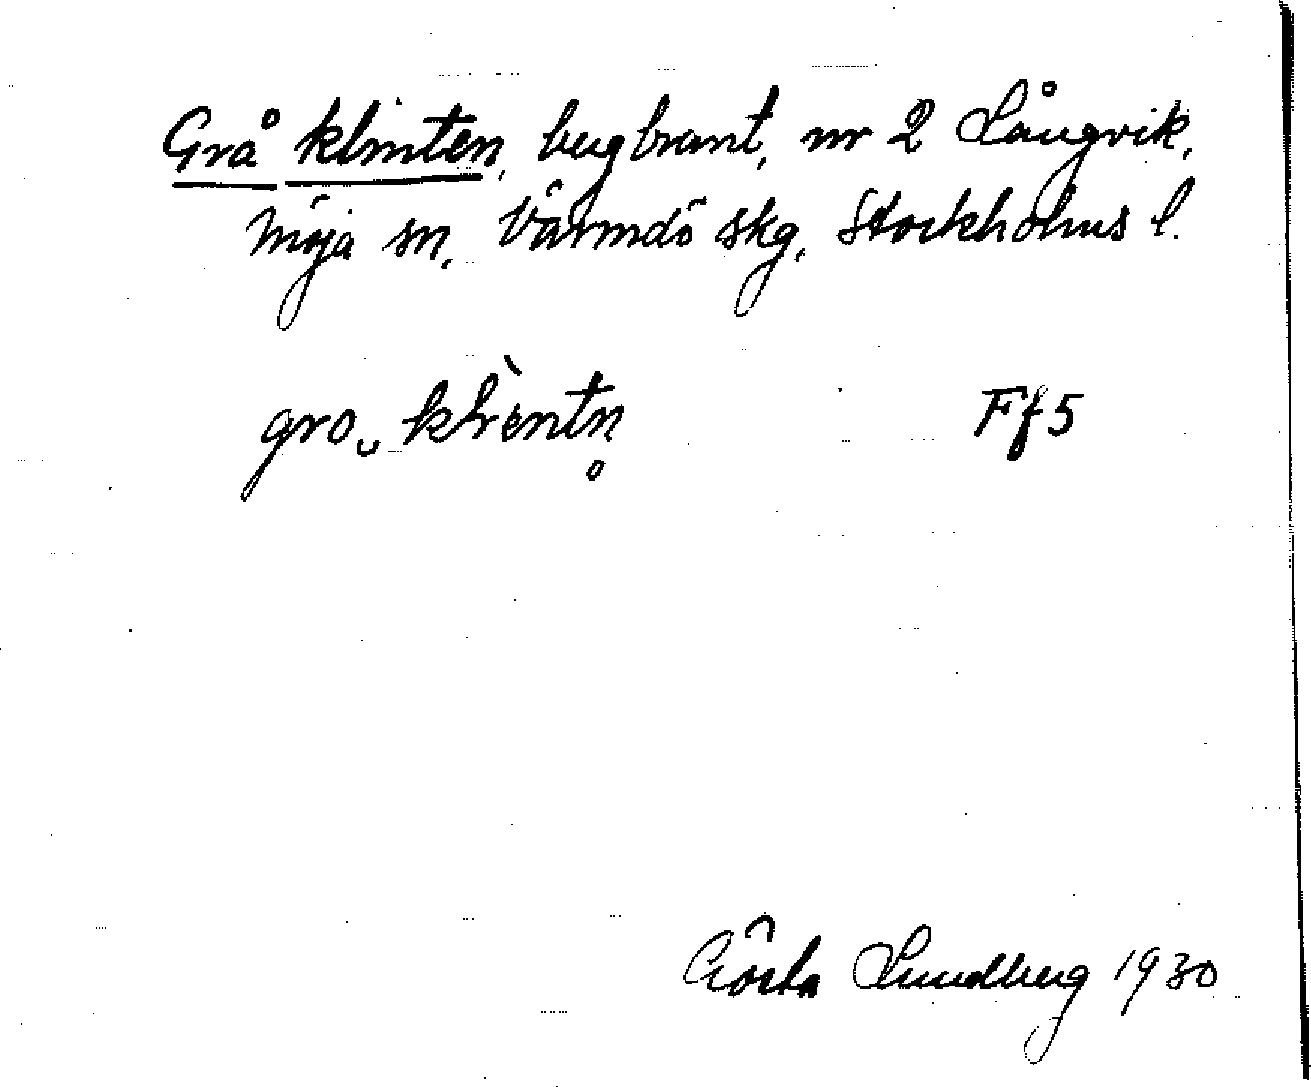 Grå klinten, bergbrant, nr 2 Långvik,
Möja sn, Värmdö skg, Stockholms l.
gro klèntn̥
Ff5
Gösta Lundberg 1930